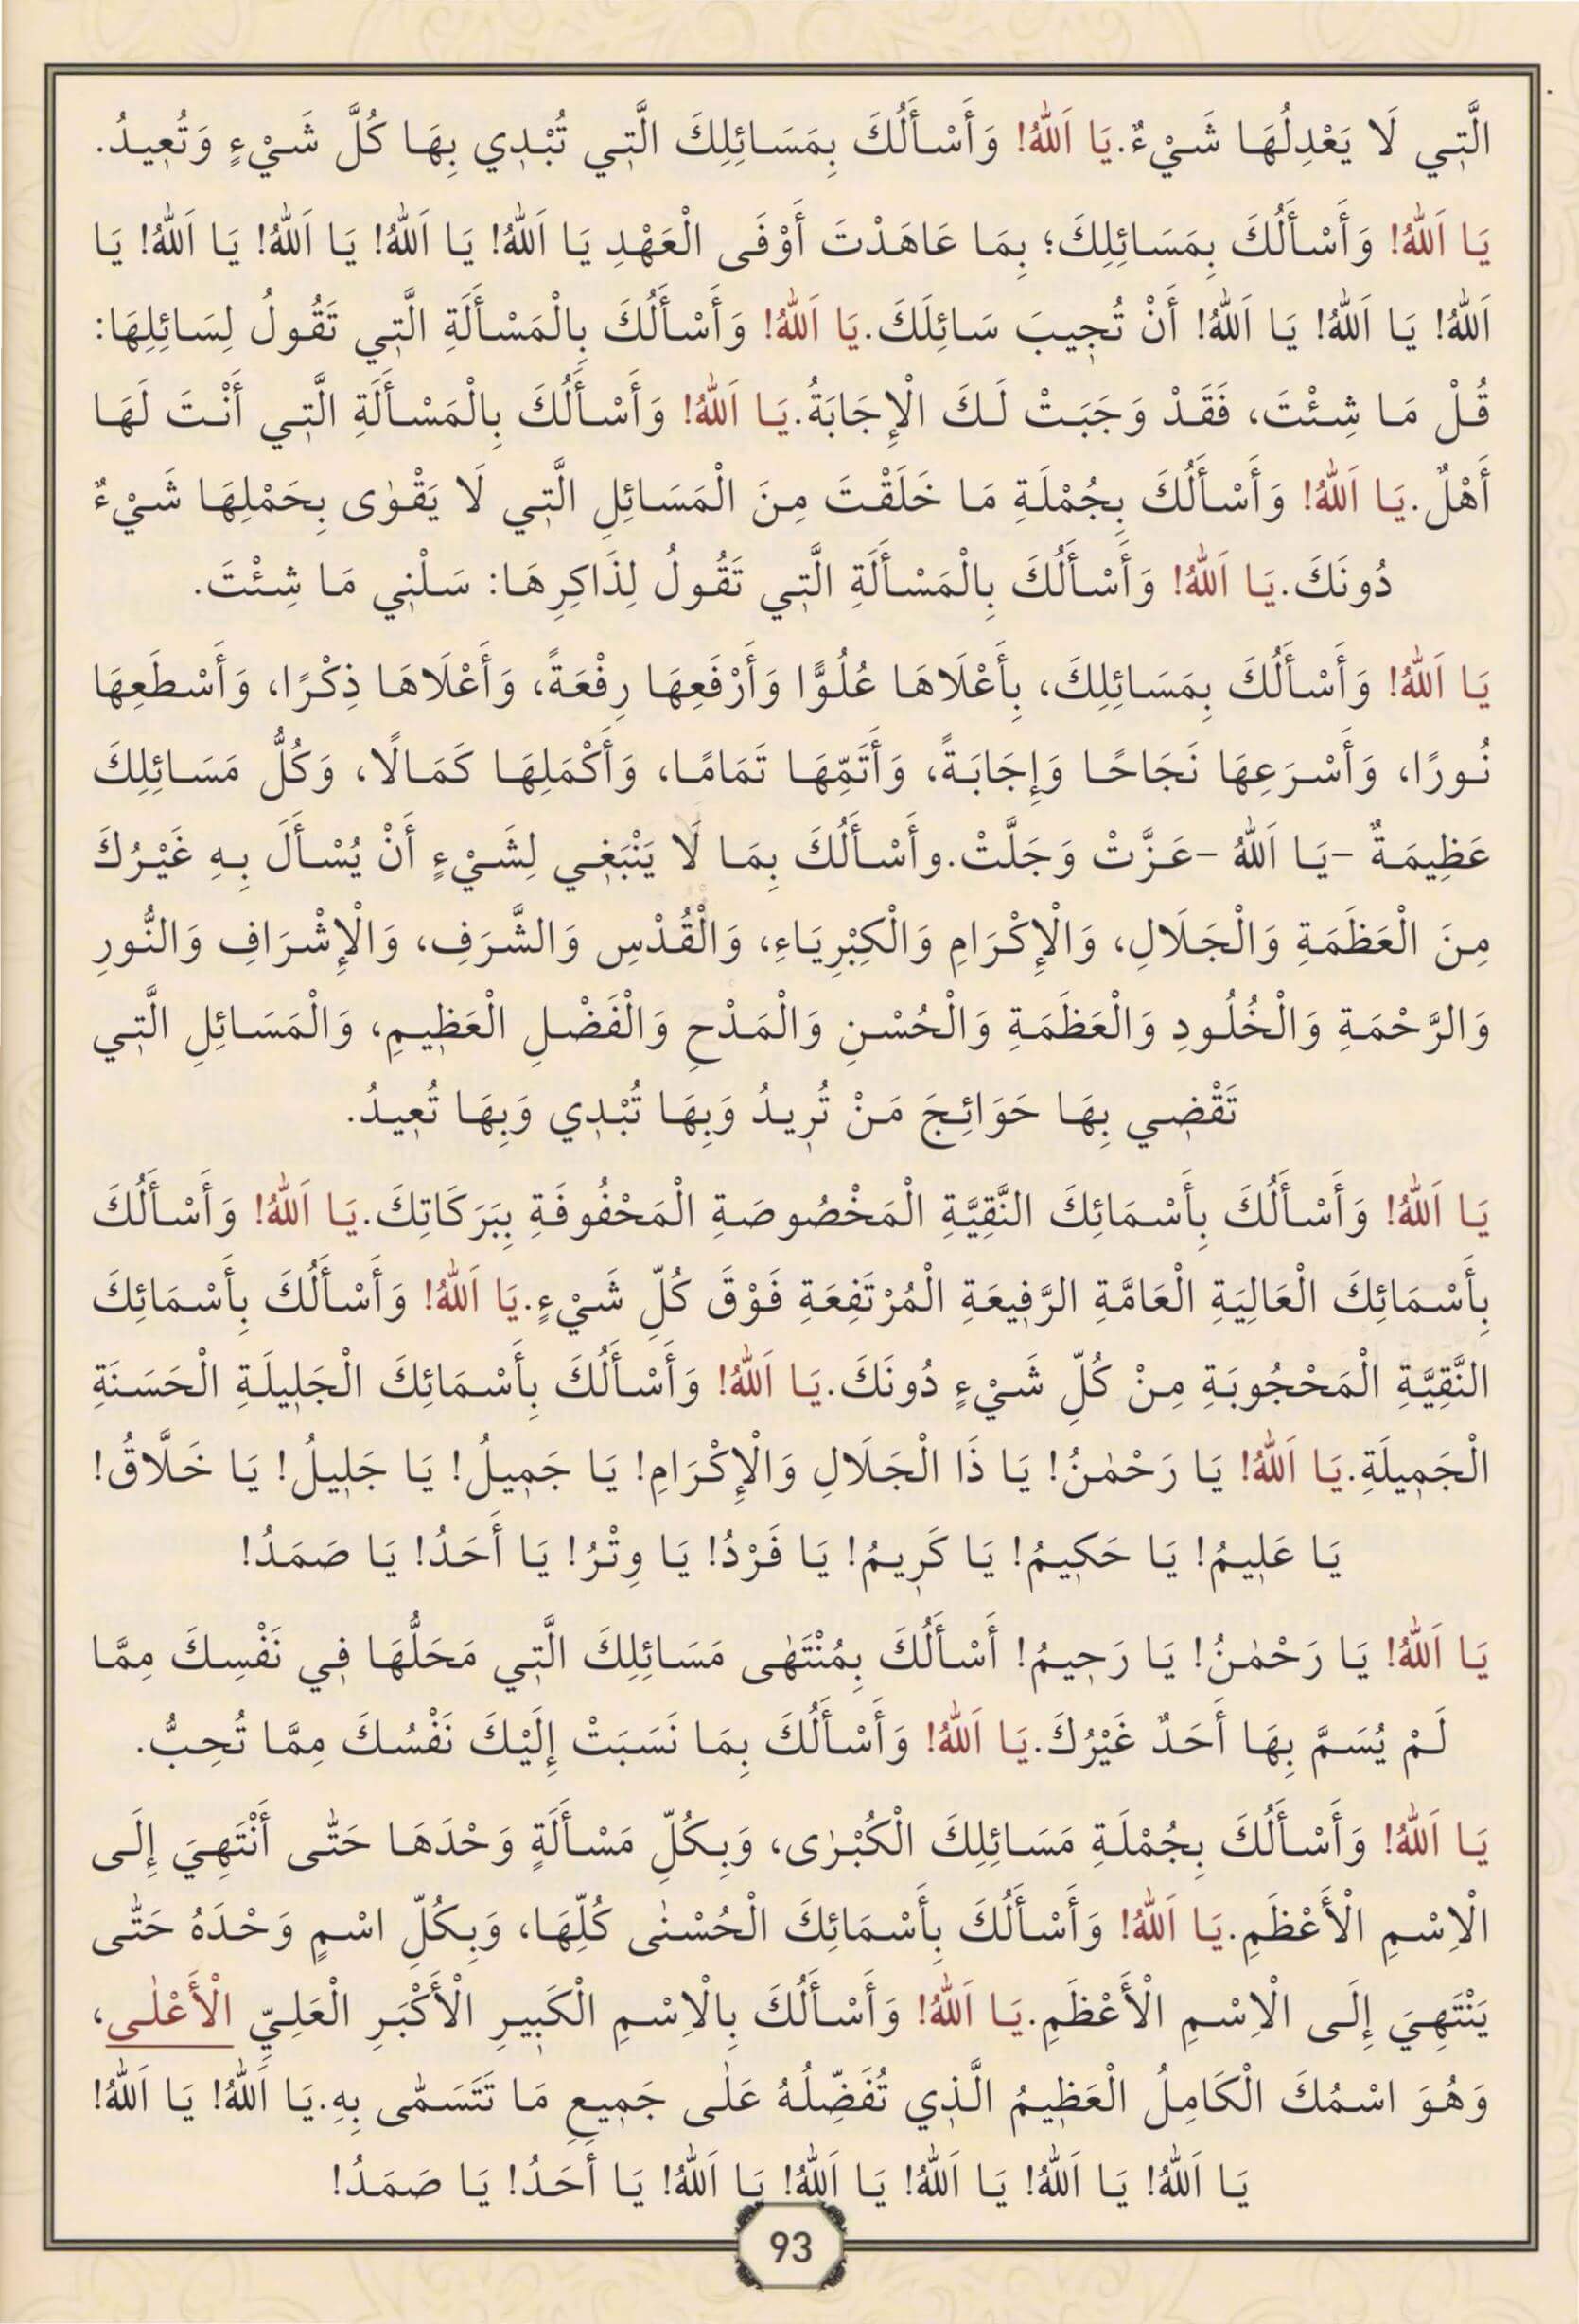 الَّتِي لَا يَعْدِلُهَا شَيْءٌ. يَا اَللّٰهُ! وَأَسْأَلُكَ بِمَسَائِلِكَ الَّتِي تُبْدِي بِهَا كُلَّ شَيْءٍ وَتُعِيدُ.
يَا اَللّٰهُ! وَأَسْأَلُكَ بِمَسَائِلِكَ؛ بِمَا عَاهَدْتَ أَوْفَى الْعَهْدِ يَا اَللّٰهُ! يَا اَللّٰهُ! يَا اَللّٰهُ! يَا اَللّٰهُ! يَا
اَللّٰهُ! يَا اَللّٰهُ! يَا اَللّٰهُ! أَنْ تُجِيبَ سَائِلَكَ. يَا اَللّٰهُ! وَأَسْأَلُكَ بِالْمَسْأَلَةِ الَّتِي تَقُولُ لِسَائِلِهَا:
قُلْ مَا شِئْتَ، فَقَدْ وَجَبَتْ لَكَ الْإِجَابَةُ. يَا اَللّٰهُ! وَأَسْأَلُكَ بِالْمَسْأَلَةِ الَّتِي أَنْتَ لَهَا
أَهْلٌ. يَا اَللّٰهُ! وَأَسْأَلُكَ بِجُمْلَةِ مَا خَلَقْتَ مِنَ الْمَسَائِلِ الَّتِي لَا يَقْوٰى بِحَمْلِهَا شَيْءٌ
دُونَكَ. يَا اَللّٰهُ! وَأَسْأَلُكَ بِالْمَسْأَلَةِ الَّتِي تَقُولُ لِذَاكِرِهَا: سَلْنِي مَا شِئْتَ.
يَا اَللّٰهُ! وَأَسْأَلُكَ بِمَسَائِلِكَ، بِأَعْلَاهَا عُلُوًّا وَأَرْفَعِهَا رِفْعَةً، وَأَعْلَاهَا ذِكْرًا، وَأَسْطَعِهَا
نُورًا، وَأَسْرَعِهَا نَجَاحًا وَإِجَابَةً، وَأَتَمِّهَا تَمَامًا، وَأَكْمَلِهَا كَمَالًا، وَكُلُّ مَسَائِلِكَ
عَظِيمَةٌ –يَا اَللّٰهُ –عَزَّتْ وَجَلَّتْ. وأَسْأَلُكَ بِمَا لَا يَنْبَغِي لِشَيْءٍ أَنْ يُسْأَلَ بِهِ غَيْرُكَ
مِنَ الْعَظَمَةِ وَالْجَلَالِ، وَالْإِكْرَامِ وَالْكِبْرِيَاءِ، وَالْقُدْسِ وَالشَّرَفِ، وَالْإِشْرَافِ وَالنُّورِ
وَالرَّحْمَةِ وَالْخُلُودِ وَالْعَظَمَةِ وَالْحُسْنِ وَالْمَدْحِ وَالْفَضْلِ الْعَظِيمِ، وَالْمَسَائِلِ الَّتِي
تَقْضِي بِهَا حَوَائِجَ مَنْ تُرِيدُ وَبِهَا تُبْدِي وَبِهَا تُعِيدُ.
يَا اَللّٰهُ! وَأَسْأَلُكَ بِأَسْمَائِكَ النَّقِيَّةِ الْمَخْصُوصَةِ الْمَحْفُوفَةِ بِبَرَكَاتِكَ. يَا اَللّٰهُ! وَأَسْأَلُكَ
بِأَسْمَائِكَ الْعَالِيَةِ الْعَامَّةِ الرَّفِيعَةِ الْمُرْتَفِعَةِ فَوْقَ كُلِّ شَيْءٍ. يَا اَللّٰهُ! وَأَسْأَلُكَ بِأَسْمَائِكَ
النَّقِيَّةِ الْمَحْجُوبَةِ مِنْ كُلِّ شَيْءٍ دُونَكَ. يَا اَللّٰهُ! وَأَسْأَلُكَ بِأَسْمَائِكَ الْجَلِيلَةِ الْحَسَنَةِ
الْجَمِيلَةِ. يَا اَللّٰهُ! يَا رَحْمٰنُ! يَا ذَا الْجَلَالِ وَالْإِكْرَامِ! يَا جَمِيلُ! يَا جَلِيلُ! يَا خَلَّاقُ!
يَا عَلِيمُ! يَا حَكِيمُ! يَا كَرِيمُ! يَا فَرْدُ! يَا وِتْرُ! يَا أَحَدُ! يَا صَمَدُ!
يَا اَللّٰهُ! يَا رَحْمٰنُ! يَا رَحِيمُ! أَسْأَلُكَ بِمُنْتَهٰى مَسَائِلِكَ الَّتِي مَحَلُّهَا فِي نَفْسِكَ مِمَّا
لَمْ يُسَمَّ بِهَا أَحَدٌ غَيْرُكَ. يَا اَللّٰهُ! وَأَسْأَلُكَ بِمَا نَسَبَتْ إِلَيْكَ نَفْسُكَ مِمَّا تُحِبُّ.
يَا اَللّٰهُ! وَأَسْأَلُكَ بِجُمْلَةِ مَسَائِلِكَ الْكُبْرٰى، وَبِكُلِّ مَسْأَلَةٍ وَحْدَهَا حَتّٰى أَنْتَهِيَ إِلَى
الْاِسْمِ الْأَعْظَمِ. يَا اَللّٰهُ! وَأَسْأَلُكَ بِأَسْمَائِكَ الْحُسْنٰى كُلِّهَا، وَبِكُلِّ اسْمٍ وَحْدَهُ حَتّٰى
يَنْتَهِيَ إِلَى الْاِسْمِ الْأَعْظَمِ. يَا اَللّٰهُ! وَأَسْأَلُكَ بِالْاِسْمِ الْكَبِيرِ الْأَكْبَرِ الْعَلِيِّ الْأَعْلٰى،
وَهُوَ اسْمُكَ الْكَامِلُ الْعَظِيمُ الَّذِي تُفَضِّلُهُ عَلٰى جَمِيعِ مَا تَتَسَمّٰى بِهِ. يَا اَللّٰهُ! يَا اَللّٰهُ!
يَا اَللّٰهُ! يَا اَللّٰهُ! يَا اَللّٰهُ! يَا اَللّٰهُ! يَا اَللّٰهُ! يَا أَحَدُ! يَا صَمَدُ!
93